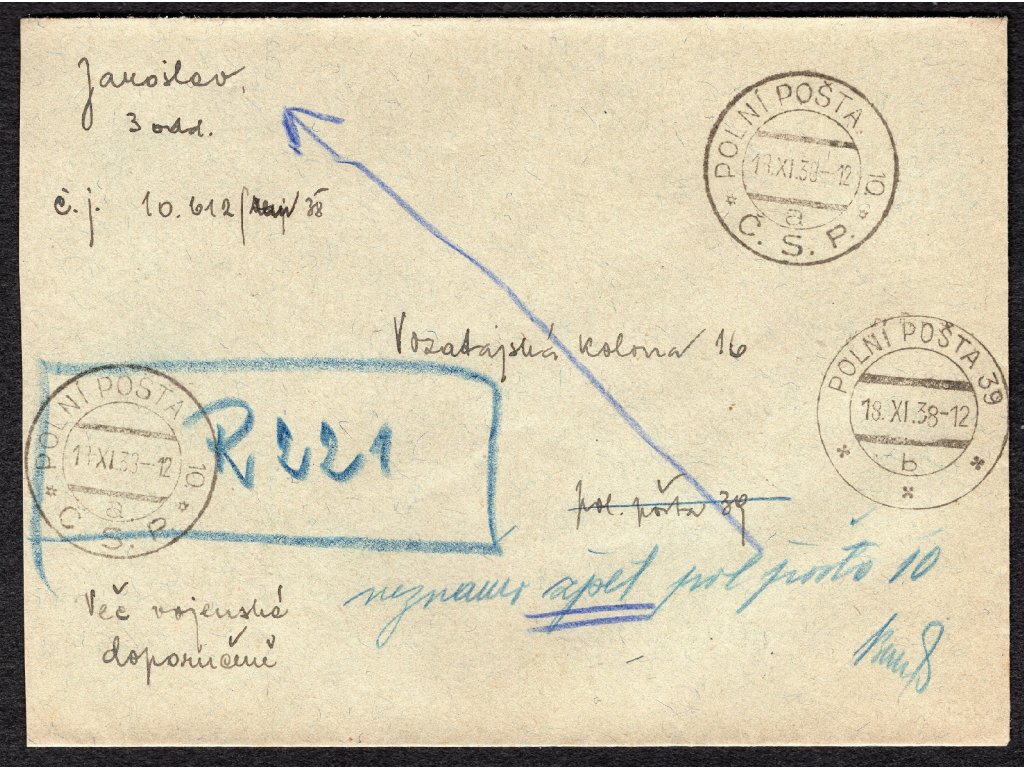 Jaroslav,
3 odd.
č. j. 10.612/ 38
POLNÍ POŠTA. 10.
17.XI.38-12
a
Č. S. P.
Vozatajská kolona 16
POLNÍ POŠTA 39
18.XI.38-12
b
POLNÍ POŠTA 10.
17.XI.38-12
a
Č. S. P.
R 221
pol. pošta 39
neznámo zpět pol pošto 10
Več vojenská
doporučeně